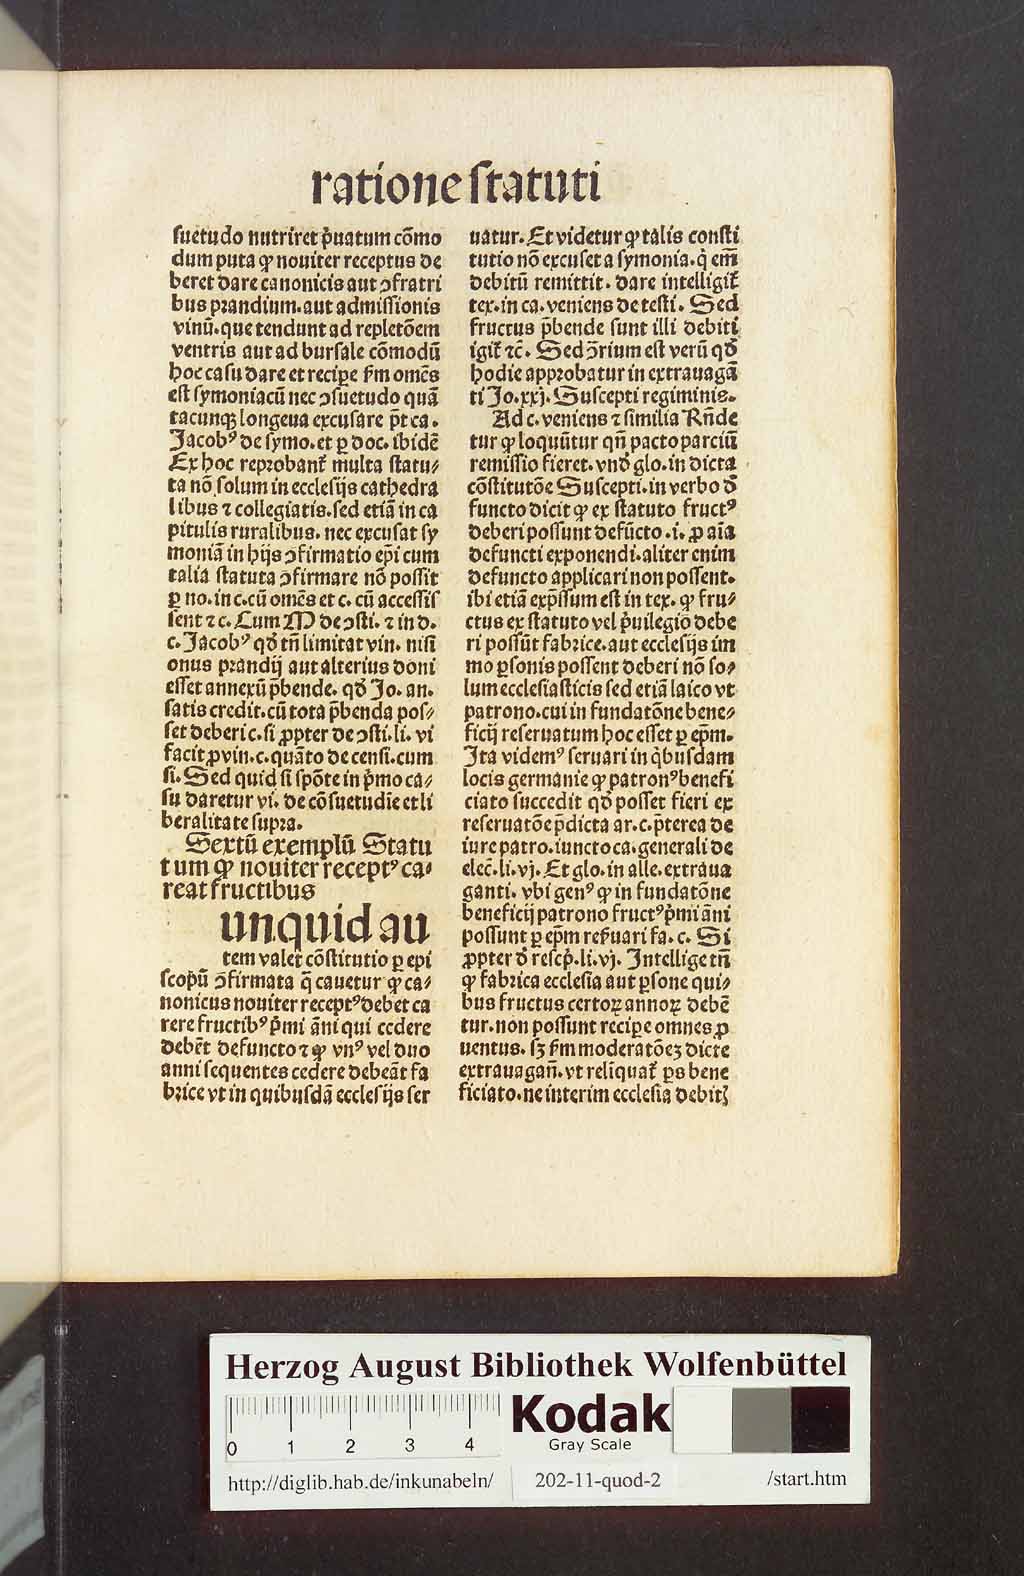 ratione ſtatuti
ſuetudo nutriret p̄uatum cōmo
dum puta ꝙ nouiter receptus de
beret dare canonicis aut ↄfratri
bus prandium. aut admiſſionis
vinū. que tendunt ad repletōem
ventris aut ad burſale cōmodū
hoc caſu dare et recipe ẜm omēs
eſt ſymoniacū nec ↄſuetudo quā
tacunqꝫ longeua excuſare p̄t ca.
Jacobꝰ de ſymo. et ꝑ doc. ibidē
Ex hoc reprobant̄ multa ſtatu⸗
ta nō ſolum in eccleſijs cathedra
libus ⁊ collegiatis. ſed etiā in ca
pitulis ruralibus. nec excuſat ſy
moniā in hijs ↄfirmatio ep̄i cum
talia ſtatuta ↄfirmare nō poſſit
ꝑ no. in c. cū omēs et c. cū acceſſiſ
ſent ⁊ c. Cum M de ↄſti. ⁊ in d.
c. Jacobꝰ qd̄ tn̄ limitat vin. niſi
onus prandij aut alterius doni
eſſet annexū p̄bende. qd̄ Jo. an.
ſatis credit. cū tota p̄benda poſ⸗
ſet deberi c. ſi ꝓpter de ↄſti. li. vi
facit ꝓ vin. c. quāto de cenſi. cum
ſi. Sed quid ſi ſpōte in p̄mo ca⸗
ſu daretur vi. de cōſuetudīe et li
beralitate ſupra.
Sextū exemplū Statu
tum ꝙ nouiter receptꝰ ca⸗
reat fructibus
unquid au
tem valet cōſtitutio ꝑ epi
ſcopū ↄ̄firmata q̄ cauetur ꝙ ca⸗
nonicus nouiter receptꝰ debet ca
rere fructibꝰ p̄mi āni qui cedere
debēt defuncto ⁊ ꝙ vnꝰ vel duo
anni ſequentes cedere debeāt fa
brice vt in quibuſdā eccleſijs ſer
uatur. Et videtur ꝙ talis conſti
tutio nō excuſet a ſymonia. q̄ em̄
debitū remittit. dare intelligit̄
tex. in ca. veniens de teſti. Sed
fructus p̄bende ſunt illi debiti
igit̄ ⁊c̄. Sed ↄ̄rium eſt verū qd̄
hodie approbatur in extrauagā
ti Jo. xxj. Suſcepti regiminis.
Ad c. veniens ⁊ ſimilia Rn̄de
tur ꝙ loquūtur qn̄ pacto parciū
remiſſio fieret. vnd̄ glo. in dicta
cōſtitutōe Suſcepti. in verbo d̄
functo dicit ꝙ ex ſtatuto fructꝰ
deberi poſſunt defūcto .i. ꝓ aīa
defuncti exponendi. aliter enim
defuncto applicari non poſſent.
ibi etiā exp̄ſſum eſt in tex. ꝙ fru⸗
ctus ex ſtatuto vel p̄uilegio debe
ri poſſūt fabrice. aut eccleſijs im
mo ꝑſonis poſſent deberi nō ſo⸗
lum eccleſiaſticis ſed etiā laico vt
patrono. cui in fundatōne bene⸗
ficij reſeruatum hoc eſſet ꝑ ep̄m.
Ita videmꝰ ſeruari in q̄buſdam
locis germanie ꝙ patronꝰ benefi
ciato ſuccedit qd̄ poſſet fieri ex
reſeruatōe p̄dicta ar. c. p̄terea de
iure patro. iuncto ca. generali de
elec̄. li. vj. Et glo. in alle. extraua
ganti. vbi genꝰ ꝙ in fundatōne
beneficij patrono fructꝰ p̄mi āni
poſſunt ꝑ ep̄m reẜuari fa. c. Si
ꝓpter d̄ reſcp̄. li. vj. Intellige tn̄
ꝙ fabrica eccleſia aut ꝑſone qui⸗
bus fructus certoꝝ annoꝝ debē
tur. non poſſunt recipe omnes ꝓ
uentus. ſꝫ ẜm moderatōeꝫ dicte
extrauagan̄. vt reliquat̄ ꝑs bene
ficiato. ne interim eccleſia debitꝭ
Herzog August Bibliothek Wolfenbüttel
0 1 2 3 4
Kodak
Gray Scale
http://diglib.hab.de/inkunabeln/ 202-11-quod-2 /start.htm